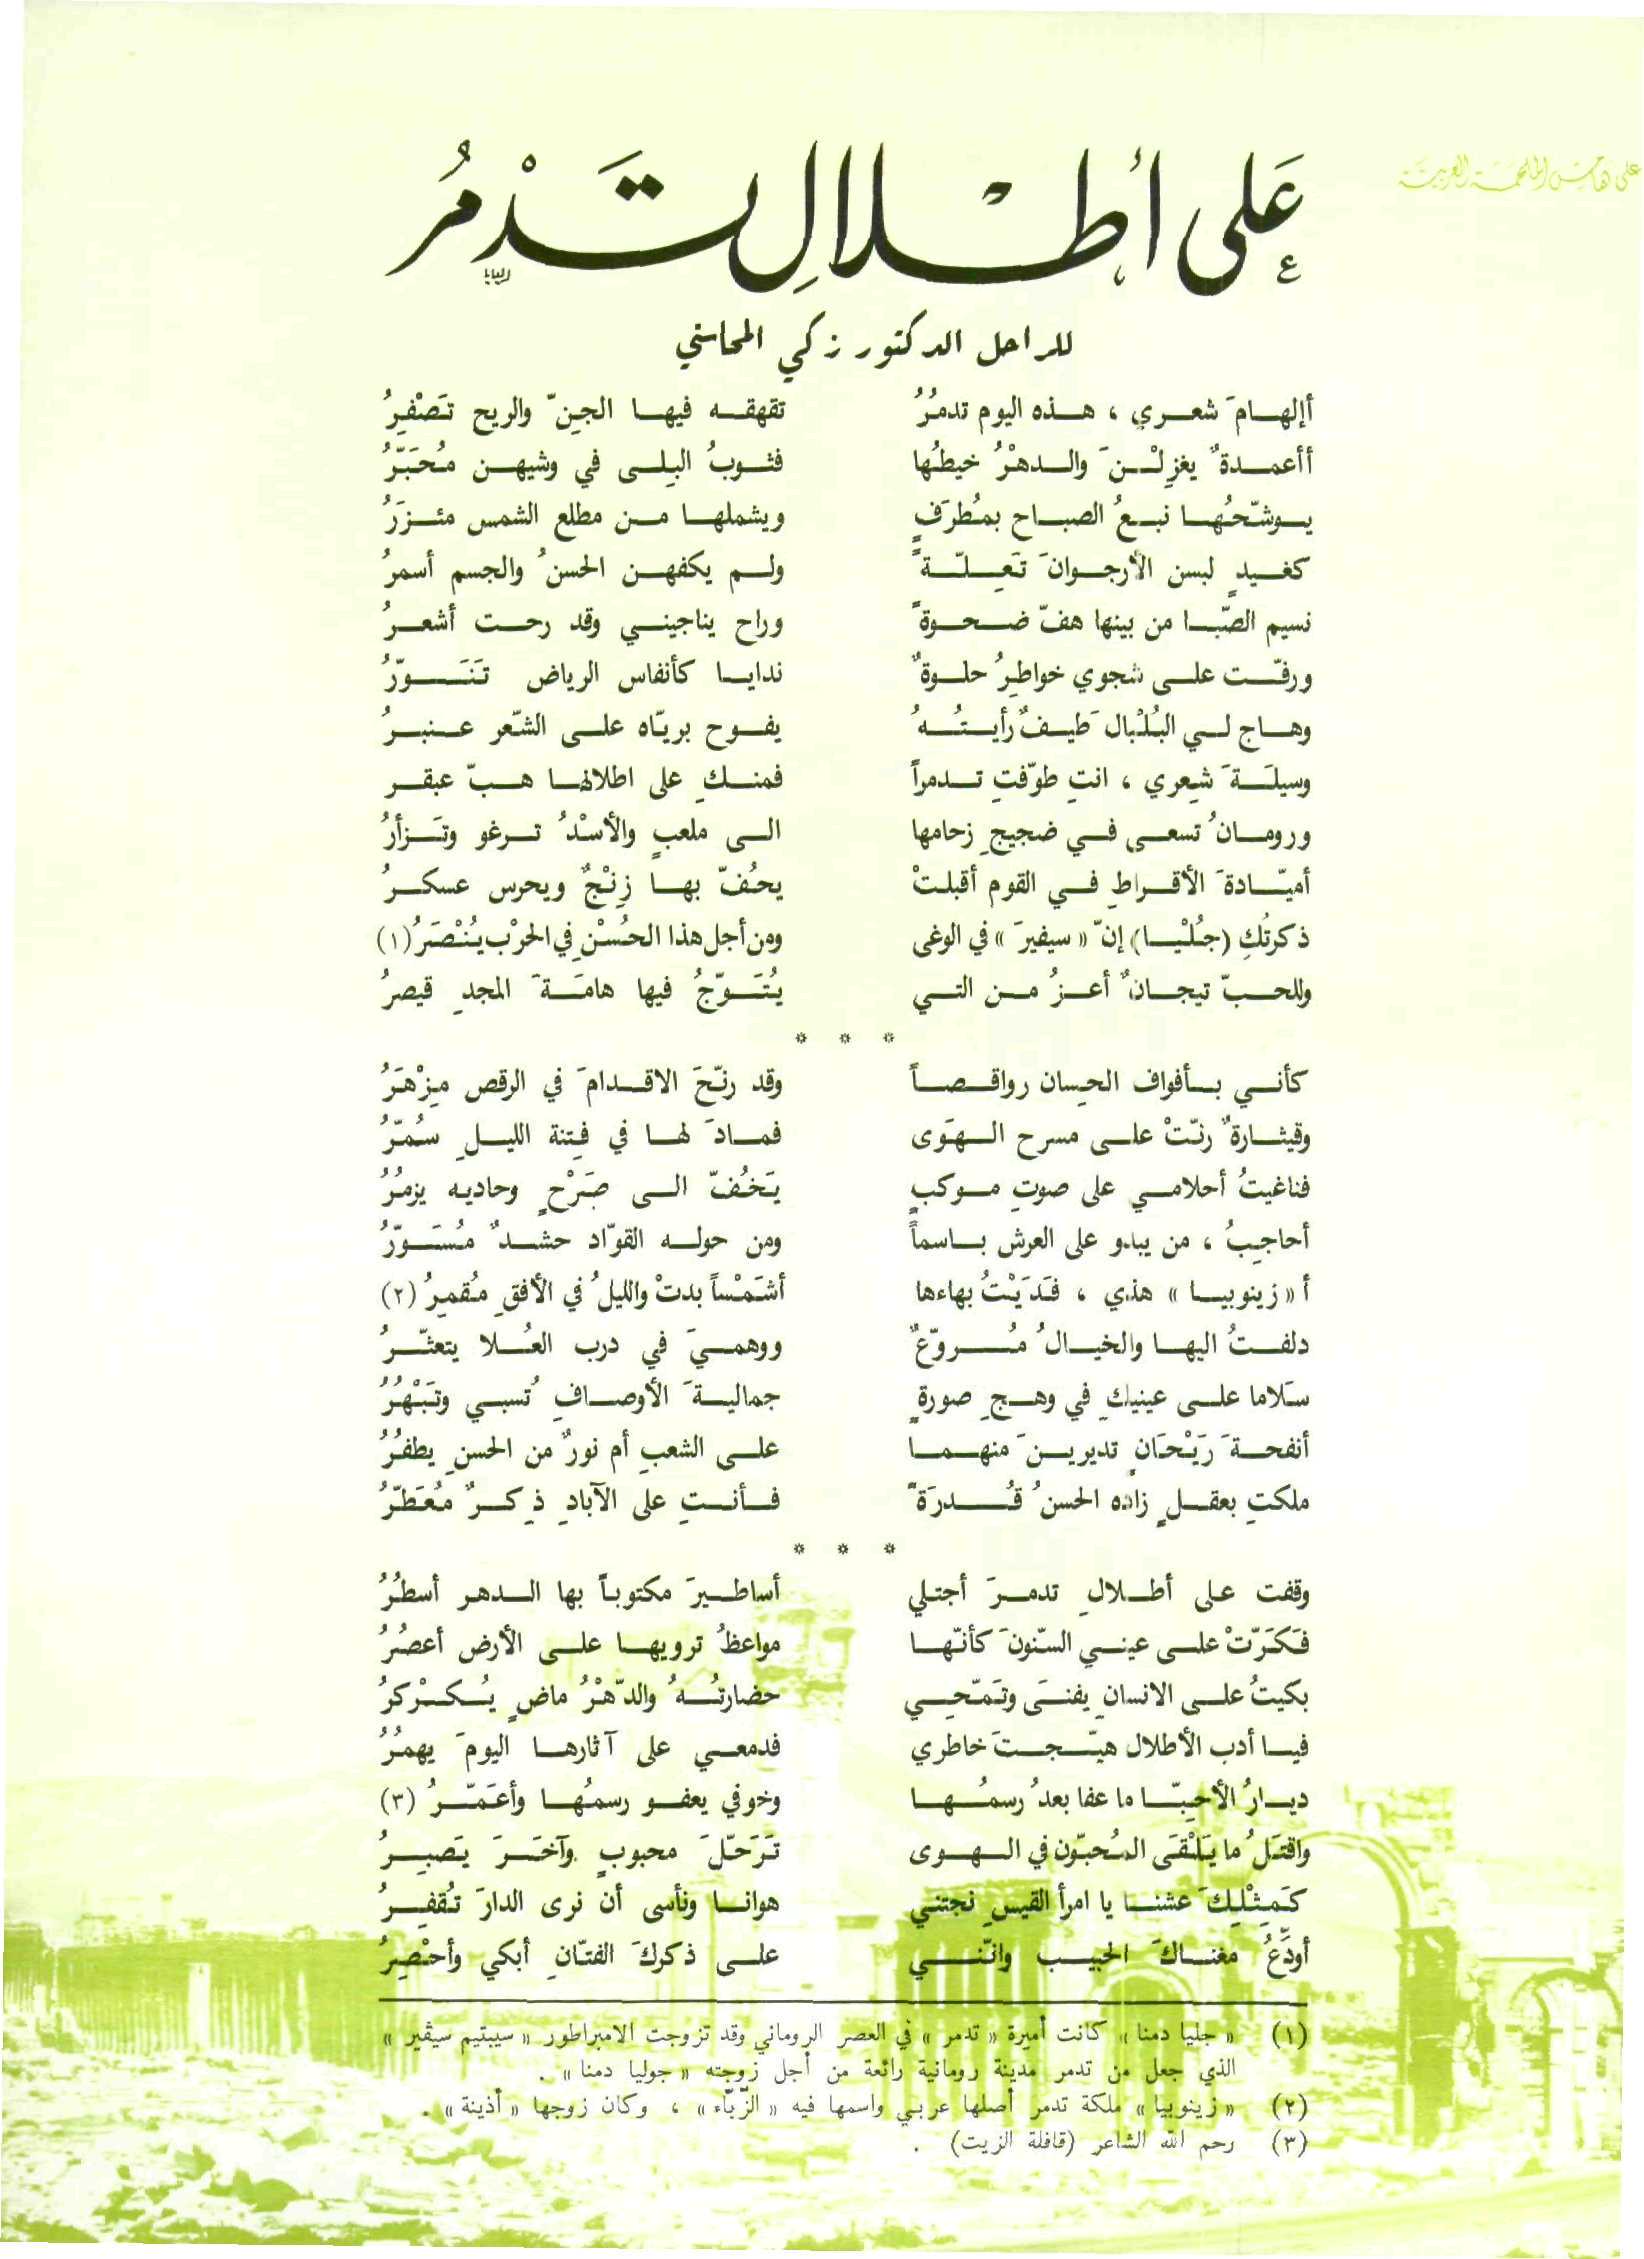 على هامش الملحمة العربية
عَلى أطْلالِ تَدْمُرُ
للراحل الدكتور زكي المحاسني
أإلهامَ شعري ، هذه اليوم تدمُرُ تقهقه فيها الجنّ والريح تَصْفِرُ
أأعمدةٌ يغزِلْنَ والدهْرُ خيطُها فثوبُ البِلى في وشيهن مُحَبّرُ
يوشّحُها نبعُ الصباح بمُطرَفٍ ويشملها من مطلع الشمس مئزَرُ
كغيدٍ لبسن الأرجوانَ تَعِلّةً ولم يكفهن الحسنُ والجسم أسمرُ
نسيم الصّبا من بينها هفّ ضحوةً وراح يناجيني وقد رحت أشعرُ
ورفّت على شجوي خواطرُ حلوةٌ ندايا كأنفاس الرياض تَنَوّرُ
وهاج لي البُلْبالَ طيفٌ رأيتُهُ يفوح بريّاه على الشّعر عنبرُ
وسيلَةَ شِعري ، انتِ طوّفتِ تدمراً فمنكِ على اطلالها هبّ عبقر
ورومانُ تسعى في ضجيجِ زحامها الى ملعبٍ والأسْدُ ترغو وتَزأرُ
أميّادةَ الأقراطِ في القوم أقبلتْ يحُفّ بها زِنْجٌ ويحرس عسكرُ
ذكرتُكِ (جُلْيا) إنّ « سيفيرَ » في الوغى ومن أجل هذا الحُسْنِ في الحرْب يُنْصَرُ (١)
وللحبّ تيجانٌ أعزُ من التي يُتَوّجُ فيها هامَةَ المجدِ قيصرُ
* * *
كأني بأفواف الحِسان رواقصاً وقد رنّحَ الاقدامَ في الرقص مِزْهَرُ
وقيثارةٌ رنّتْ على مسرح الهوَى فمادَ لها في فِتنة الليلِ سُمّرُ
فناغيتُ أحلامي على صوتِ موكبٍ يَخُفّ الى صَرْحٍ وحاديه يزمُرُ
أحاجِبُ ، من يبدو على العرش باسماً ومن حوله القوّاد حشدٌ مُسَوّرُ
أ « زينوبيا » هذي ، فَدَيْتُ بهاءها أشَمْساً بدتْ والليلُ في الأفقِ مُقمِرُ (٢)
دلفتُ اليها والخيالُ مُروّعٌ ووهميَ في درب العُلا يتعثّرُ
سلاما على عينيكِ في وهجِ صورةٍ جماليةَ الأوصافِ تُسبي وتَبْهُرُ
أنفحةَ رَيْحَانٍ تديرينَ منهما على الشعبِ أم نورٌ من الحسنِ يطفُرُ
ملكتِ بعقلٍ زاده الحسنُ قُدرَةً فأنتِ على الآبادِ ذِكرٌ مُعَطّرُ
* * *
وقفت على أطلالِ تدمرَ أجتلي أساطيرَ مكتوباً بها الدهر أسطُرُ
فَكَرّتْ على عيني السّنونَ كأنّها مواعظُ ترويها على الأرض أعصُرُ
بكيتُ على الانسانِ يفنَى وتَمّحي حضارتُهُ والدّهْرُ ماضٍ يُكَرْكرُ
فيا أدب الأطلال هيّجتَ خاطري فدمعي على آثارها اليومَ يهمُرُ
ديارُ الأحِبّا ما عفا بعدُ رسمُها وخوفي يعفو رسمُها وأعَمّرُ (٣)
واقتَلُ ما يَلْقَى المُحبّون في الهوى تَرَحّلَ محبوبٍ وآخَرَ يَصبِرُ
كَمِثْلِكَ عشنا يا امرأ القيسِ نجتني هوانا ونأسى أن نرى الدارَ تُقفِرُ
أودِّعُ مغناكَ الحبيب وانّني على ذكركَ الفتّانِ أبكي وأحْصِرُ
(١) « جليا دمنا » كانت أميرة « تدمر » في العصر الروماني وقد تزوجت الامبراطور « سيبتيم سيڤير »
الذي جعل من تدمر مدينة رومانية رائعة من أجل زوجته « جوليا دمنا » .
(٢) « زينوبيا » ملكة تدمر أصلها عربي واسمها فيه « الزّبّاء » ، وكان زوجها « أذينة » .
(٣) رحم الله الشاعر (قافلة الزيت) .